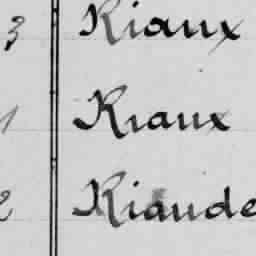 3 Kiaux
1 Kiaux
2 Kiaude